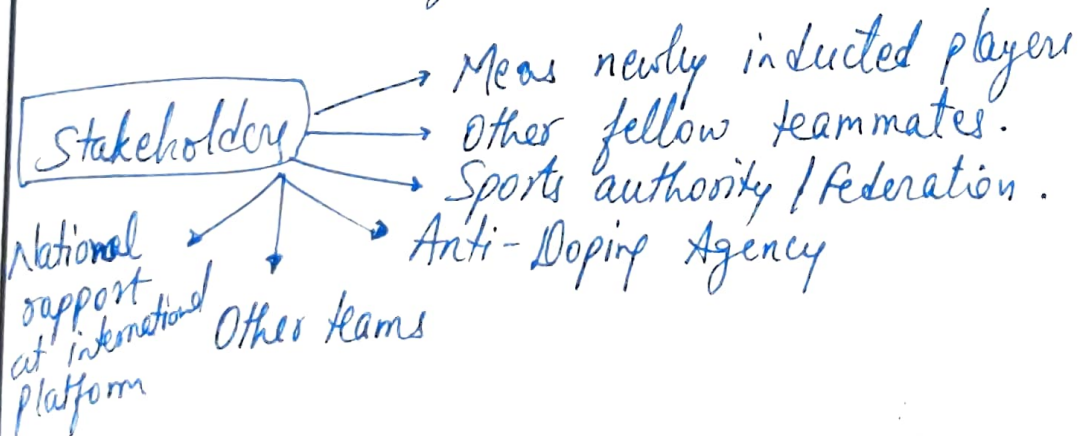 Stakeholders
Me as newly inducted players
Other fellow teammates.
Sports authority / Federation.
Anti-Doping Agency
Other teams
National
rapport
at international
platform